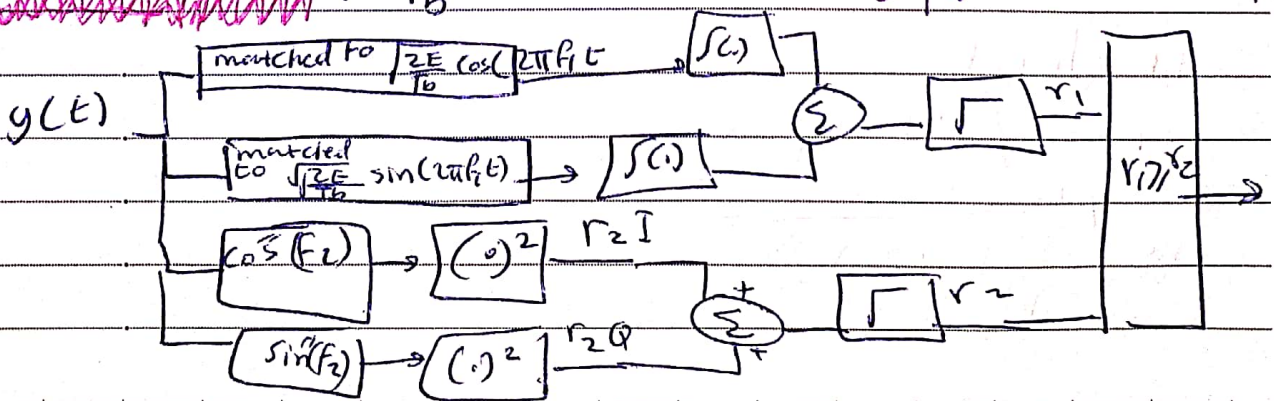 matched to √2E/Tb cos(2πf₁t
∫(.)
y(t)
Σ
√
r₁
matched
to √2E/Tb sin(2πf₁t)
∫(.)
r₁≥r₂
cos(F₂)
(.)²
r₂I
+
Σ
√
r₂
+
sin(F₂)
(.)²
r₂Q